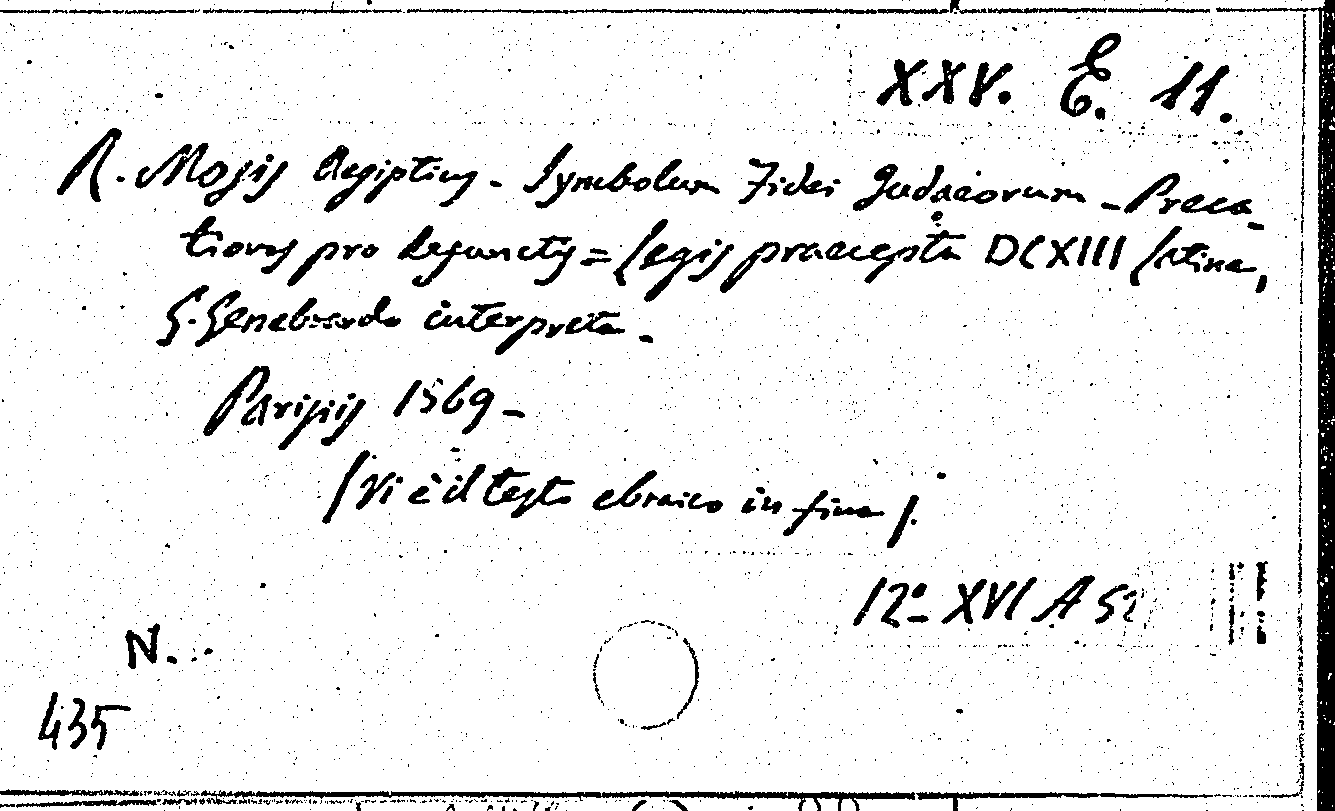 XXV. E. 11.
R. Mosis Aegiptius - Symbolum Fidei Judaeorum - Preca-
tiones pro defunctis = Legis praecepta DCXIII latine,
G. Genebrardo interprete -
Parisiis 1569 -
(Vi è il testo ebraico in fine).
12º XVI A 52
N.
435